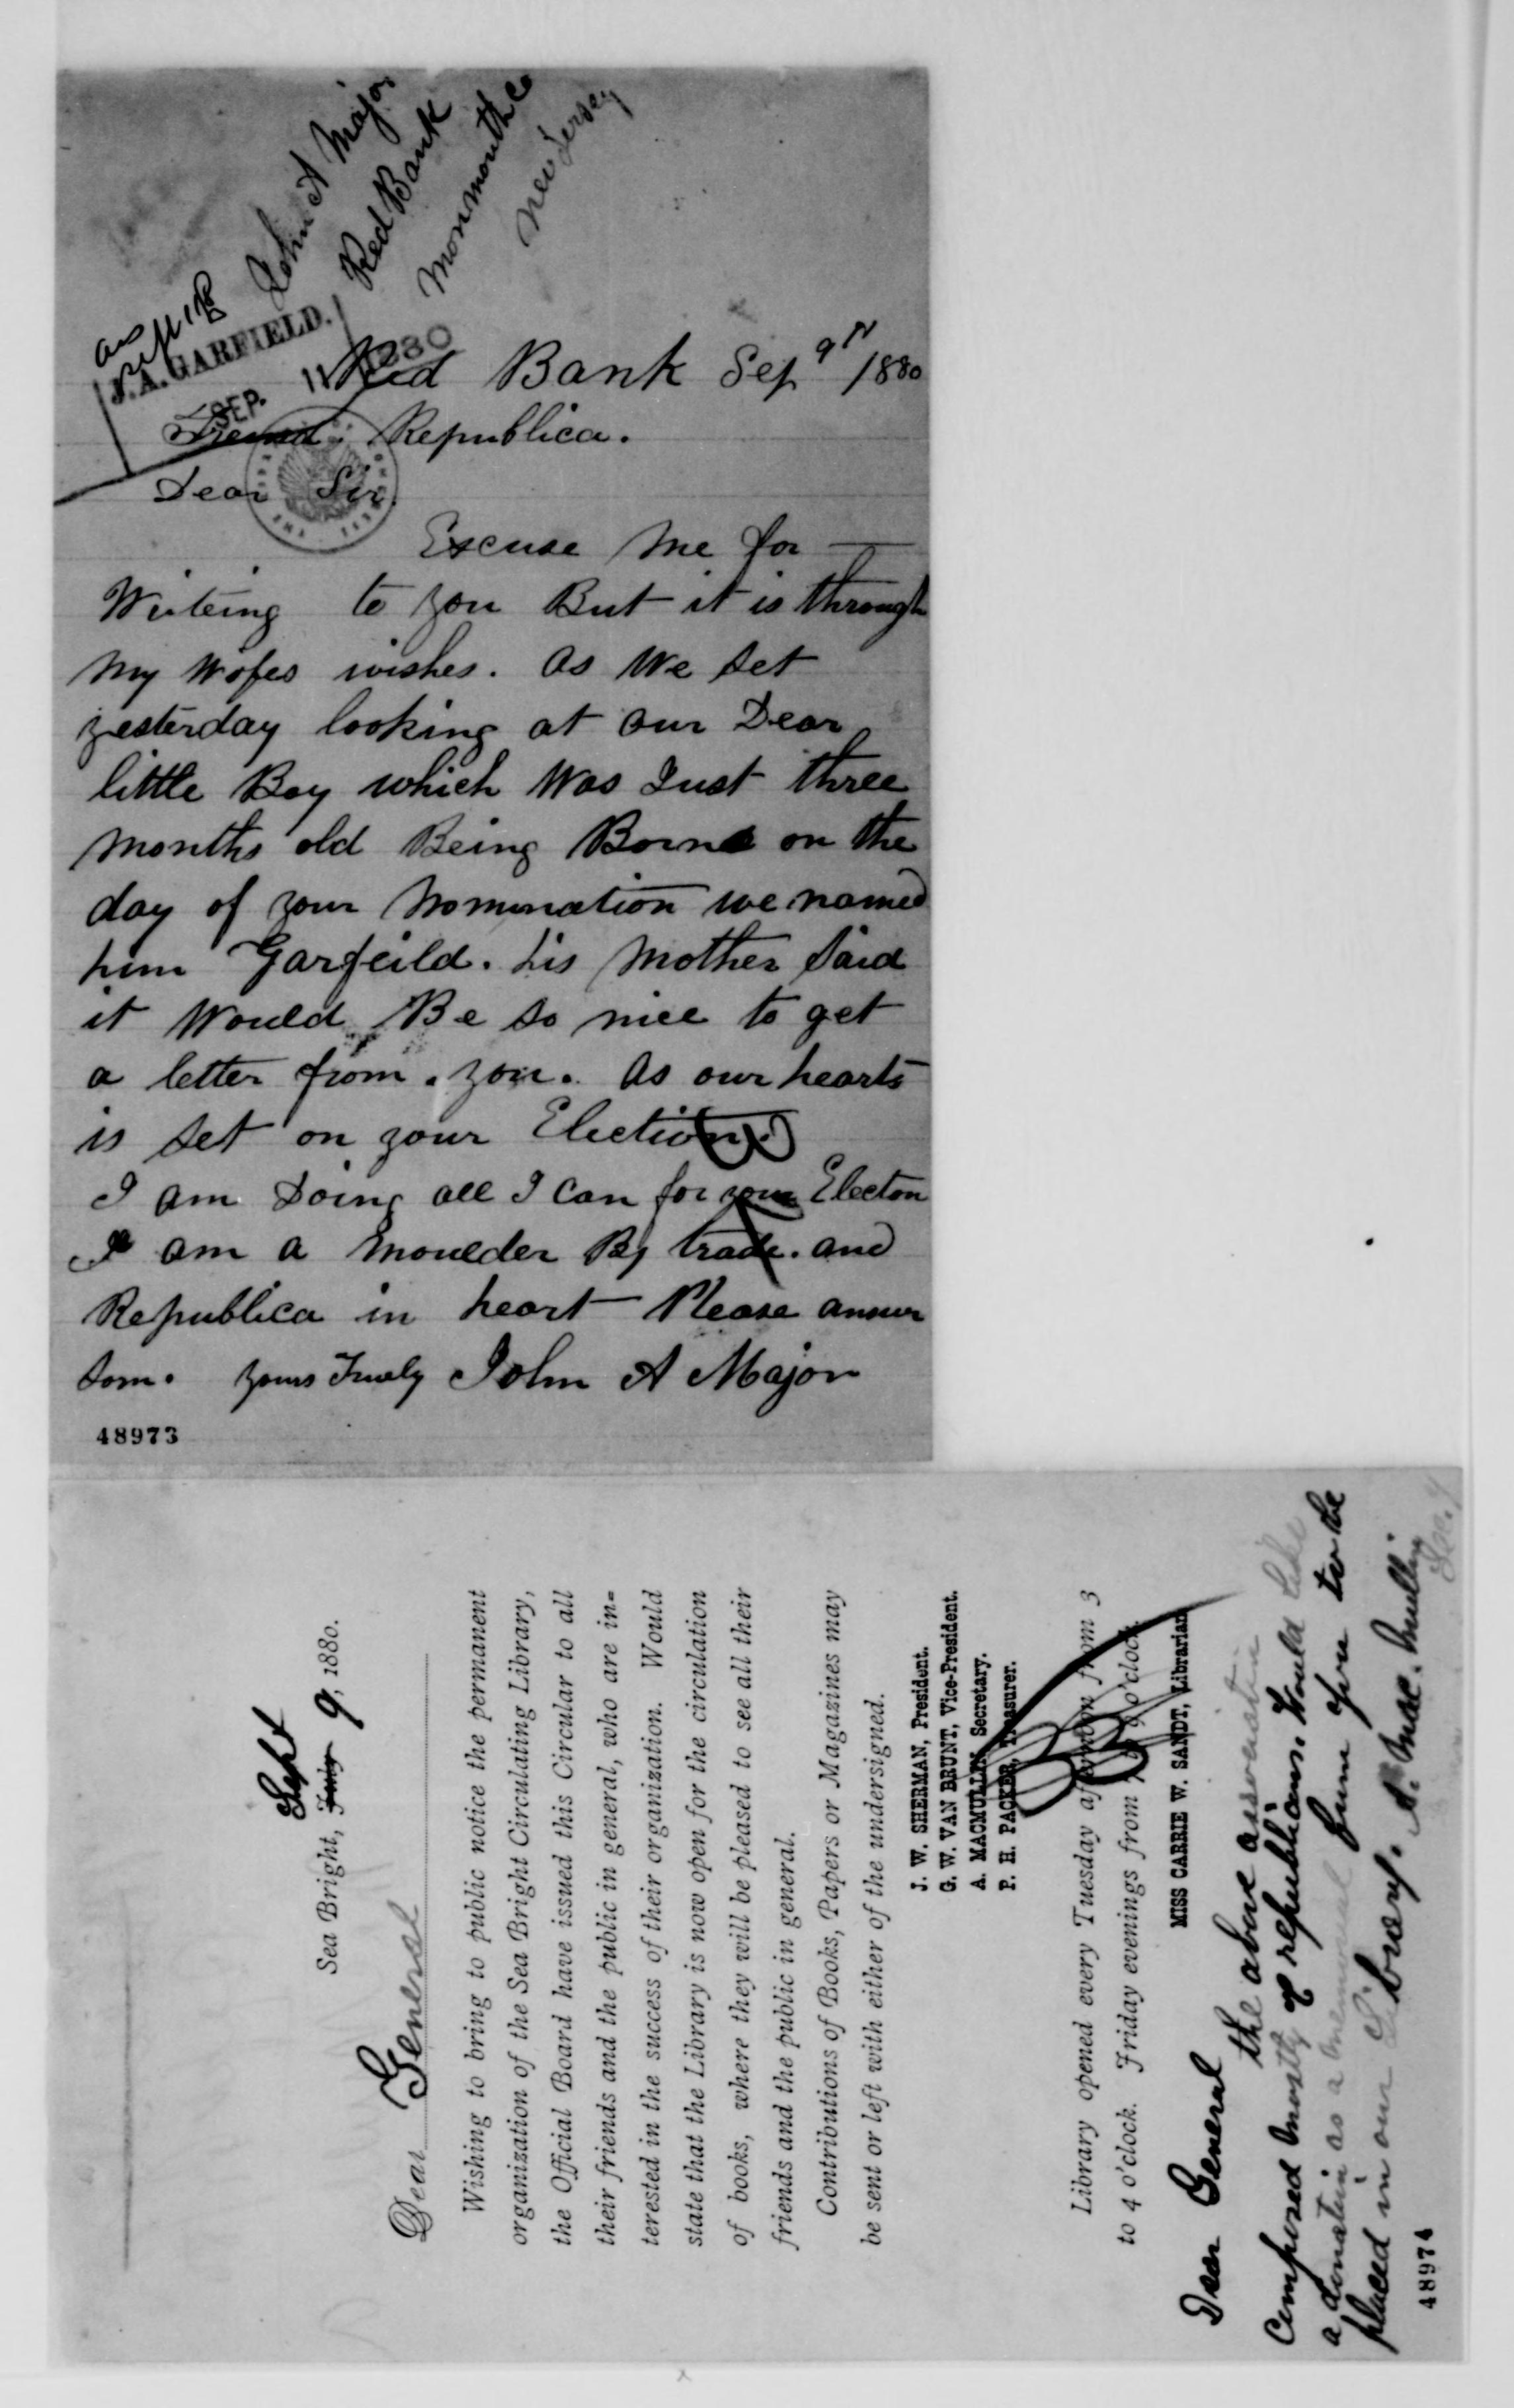 John A Major
Red Bank
Monmouth Co
New Jersey
J. A. GARFIELD.
SEP. 11 1880
Red Bank Sep 9th /1880
Friend. Republica.
Dear Sir.
Excuse me for —
Writeing to you But it is through
my Wifes wishes. as We set
yesterday looking at our Dear
little Boy which Was Just three
months old Being Borne on the
day of your nomination we named
him Garfeild. his mother said
it Would Be so nice to get
a letter from . you. as our hearts
is set on your Election.
I am Doing all I Can for your Electon
I am a moulder By trade. and
Republica in heart Please answer
som. yours Truely John A Major
48973
Sea Bright, July Sept 9, 1880.
Dear General
Wishing to bring to public notice the permanent
organization of the Sea Bright Circulating Library,
the Official Board have issued this Circular to all
their friends and the public in general, who are in-
terested in the success of their organization. Would
state that the Library is now open for the circulation
of books, where they will be pleased to see all their
friends and the public in general.
Contributions of Books, Papers or Magazines may
be sent or left with either of the undersigned.
J. W. SHERMAN, President.
G. W. VAN BRUNT, Vice-President.
A. MACMULLIN, Secretary.
P. H. PACKER, Treasurer.
Library opened every Tuesday afternoon from 3
to 4 o'clock. Friday evenings from 7 to 9 o'clock.
MISS CARRIE W. SANDT, Librarian
Dear General
the above association
Composed mostly of republicans. Would like
a donation as a memorial from you to be
placed in our Library. A. Mac. Mullin
Sec.y
48974